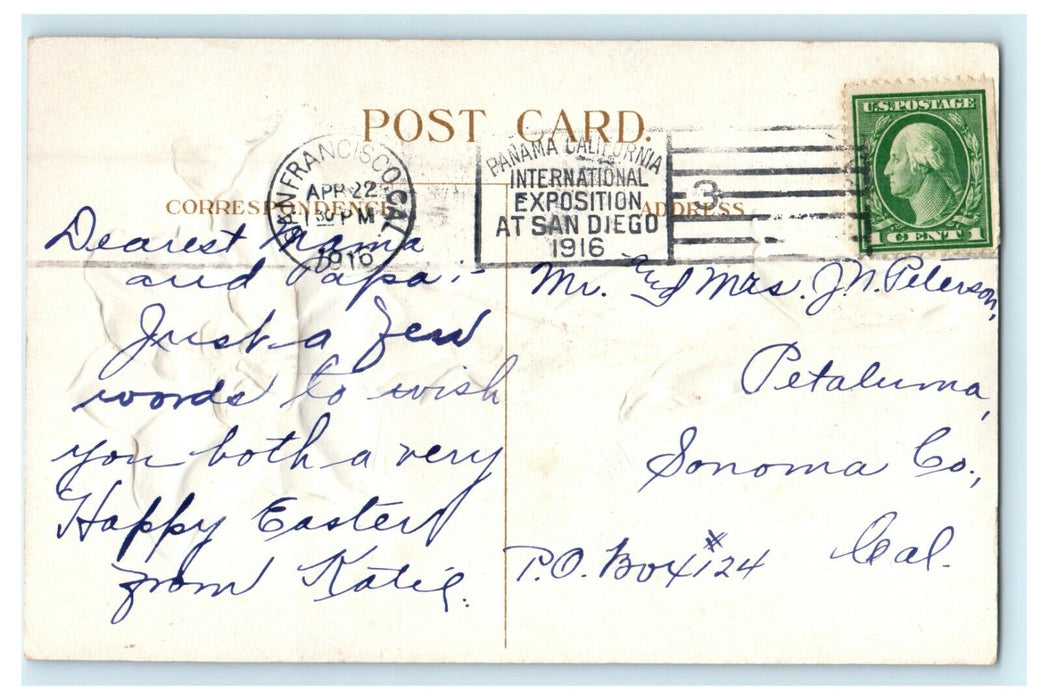 POST CARD.
SAN FRANCISCO, CAL.
APR 22
1 30 PM
1916
PANAMA CALIFORNIA
INTERNATIONAL
EXPOSITION
AT SAN DIEGO
1916
3
U.S. POSTAGE
1 CENT 1
CORRESPONDENCE
ADDRESS
Dearest Mama
and Papa:
Just a few
words to wish
you both a very
Happy Easter
from Katie.
Mr. and Mrs. J. N. Peterson,
Petaluma,
Sonoma Co.,
Cal.
P.O. Box #124